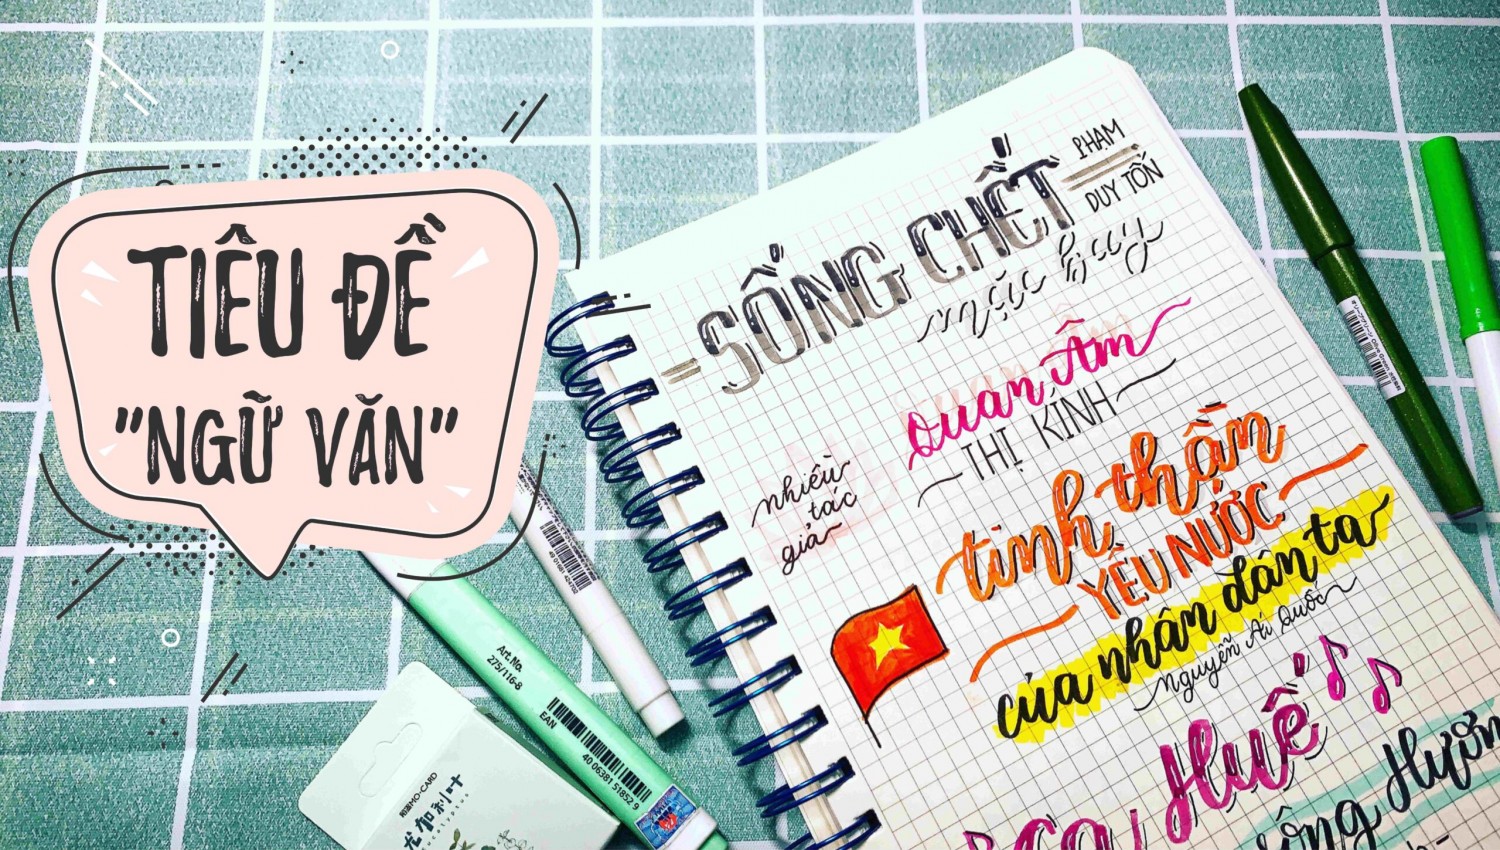 TIÊU ĐỀ
"NGỮ VĂN"
SỐNG CHẾT
mặc bay
PHẠM
DUY TỐN
Quan Âm
THỊ KÍNH
nhiều
tác
giả
tinh thần
YÊU NƯỚC
của nhân dân ta
Nguyễn Ái Quốc
Ca Huế
sông Hương
Art. No.
275/116-8
EAN
40 06381 51852 9
MO-CARD
尤加利叶